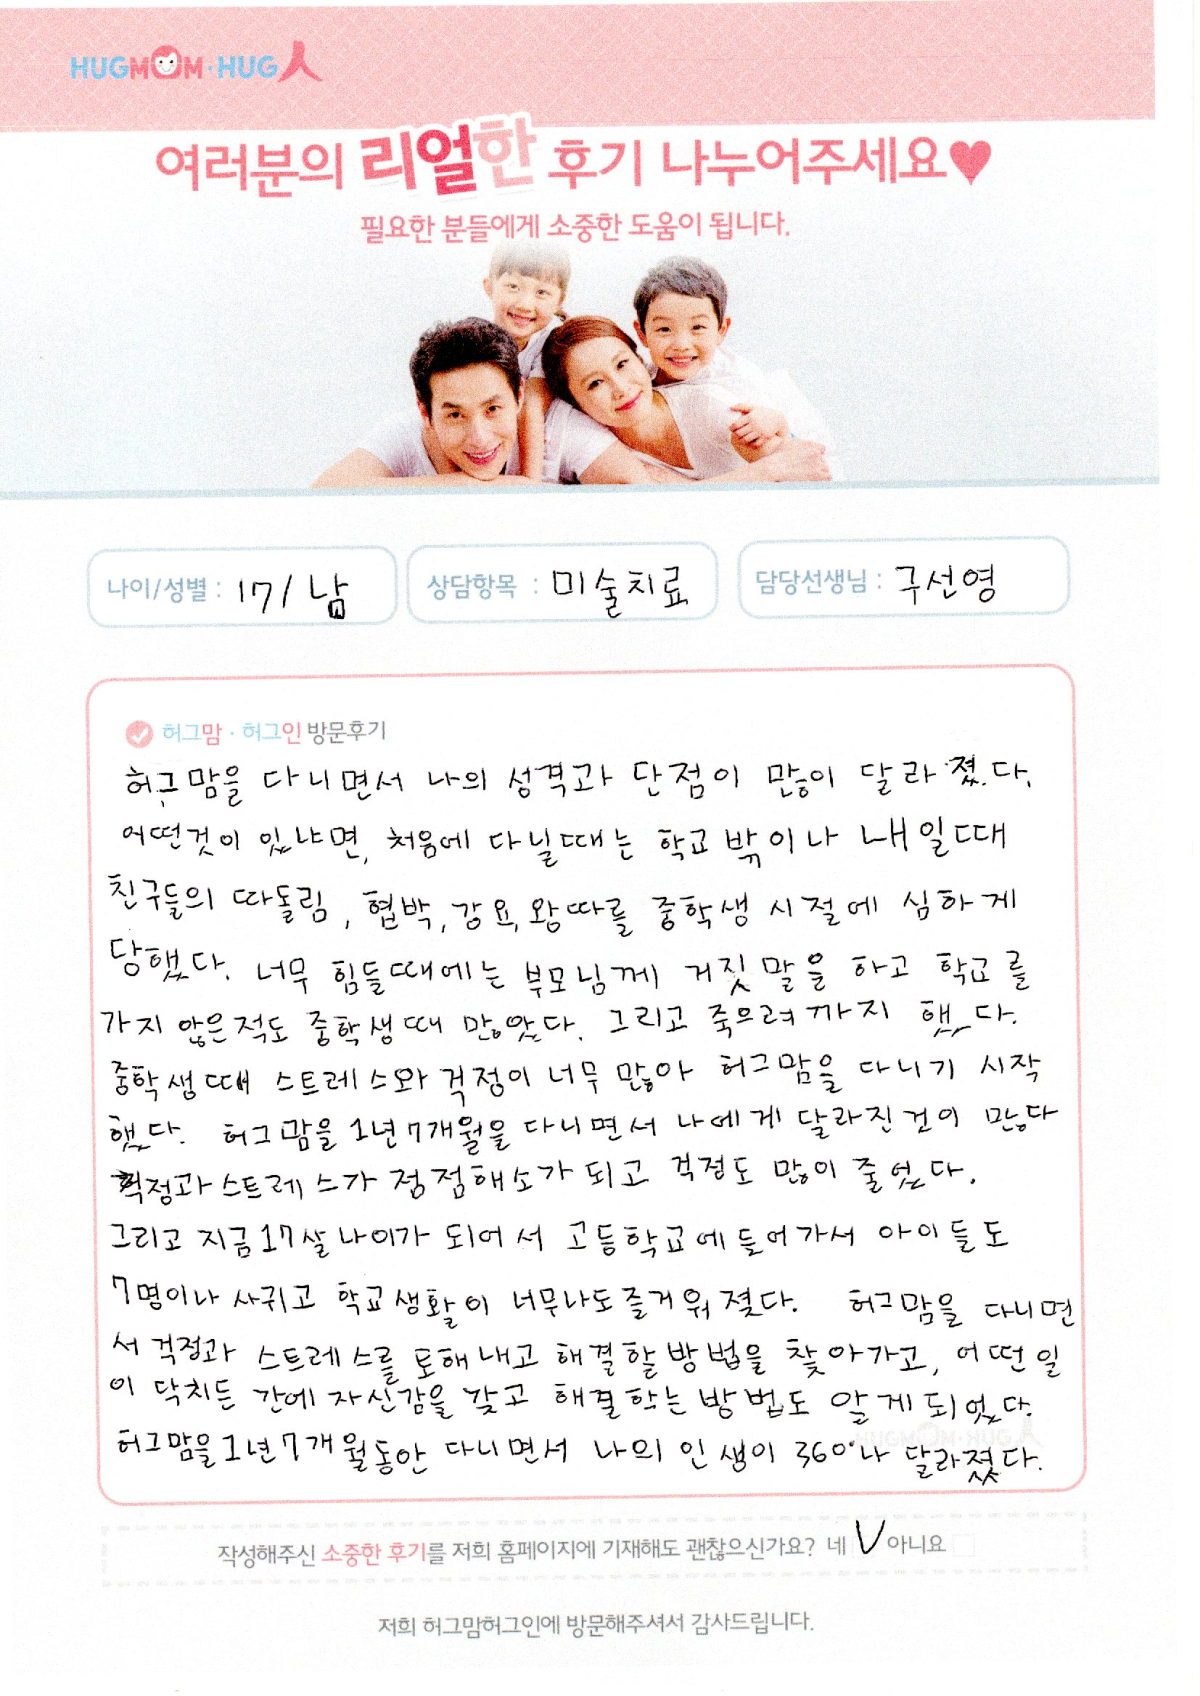 HUGMOM·HUG人
여러분의 리얼한 후기 나누어주세요♥
필요한 분들에게 소중한 도움이 됩니다.
나이/성별 : 17 / 남
상담항목 : 미술치료
담당선생님 : 구선영
허그맘·허그인 방문후기
허그맘을 다니면서 나의 성격과 단점이 많이 달라졌다.
어떤것이 있냐면, 처음에 다닐때는 학교 밖이나 내일때
친구들의 따돌림, 협박, 강요, 왕따를 중학생 시절에 심하게
당했다. 너무 힘들때에는 부모님께 거짓말을 하고 학교를
가지 않은적도 중학생때 많았다. 그리고 죽으려까지 했다.
중학생때 스트레스와 걱정이 너무 많아 허그맘을 다니기 시작
했다. 허그맘을 1년 7개월을 다니면서 나에게 달라진것이 많다
걱정과 스트레스가 점점해소가 되고 걱정도 많이 줄었다.
그리고 지금 17살 나이가 되어서 고등학교에 들어가서 아이들도
7명이나 사귀고 학교생활이 너무나도 즐거워졌다. 허그맘을 다니면
서 걱정과 스트레스를 토해내고 해결할방법을 찾아가고, 어떤일
이 닥치든 간에 자신감을 갖고 해결하는 방법도 알게되었다.
허그맘을 1년 7개월동안 다니면서 나의 인생이 360°나 달라졌다.
작성해주신 소중한 후기를 저희 홈페이지에 기재해도 괜찮으신가요? 네 V 아니요
저희 허그맘허그인에 방문해주셔서 감사드립니다.